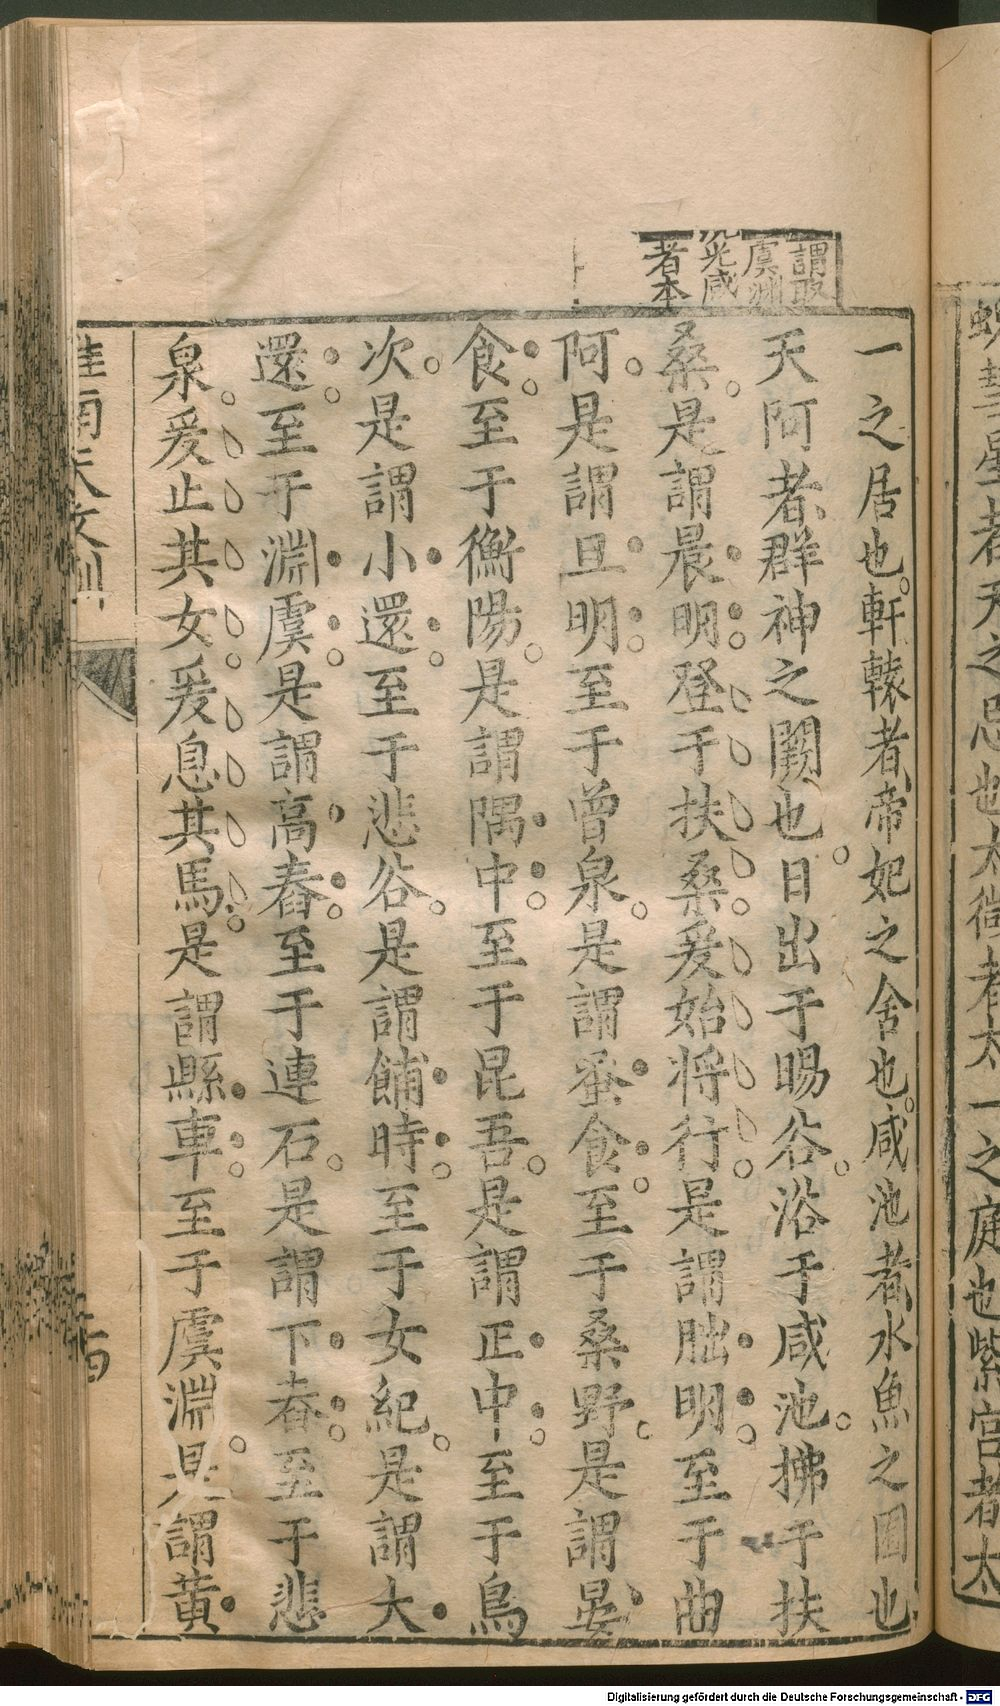 謂取
虞淵
光咸
者本
一之居也軒轅者帝妃之舍也咸池者水魚之囿也
天阿者群神之闕也日出于暘谷浴于咸池拂于扶
桑是謂晨明登于扶桑爰始將行是謂朏明至于曲
阿是謂旦明至于曾泉是謂蚤食至于桑野是謂晏
食至于衡陽是謂隅中至于昆吾是謂正中至于鳥
次是謂小還至于悲谷是謂餔時至于女紀是謂大
還至于淵虞是謂高舂至于連石是謂下舂至于悲
泉爰止其女爰息其馬是謂縣車至于虞淵是謂黃
淮南天文訓
星者天之忌也太微者太一之庭也紫宮者太
Digitalisierung gefördert durch die Deutsche Forschungsgemeinschaft - DFG